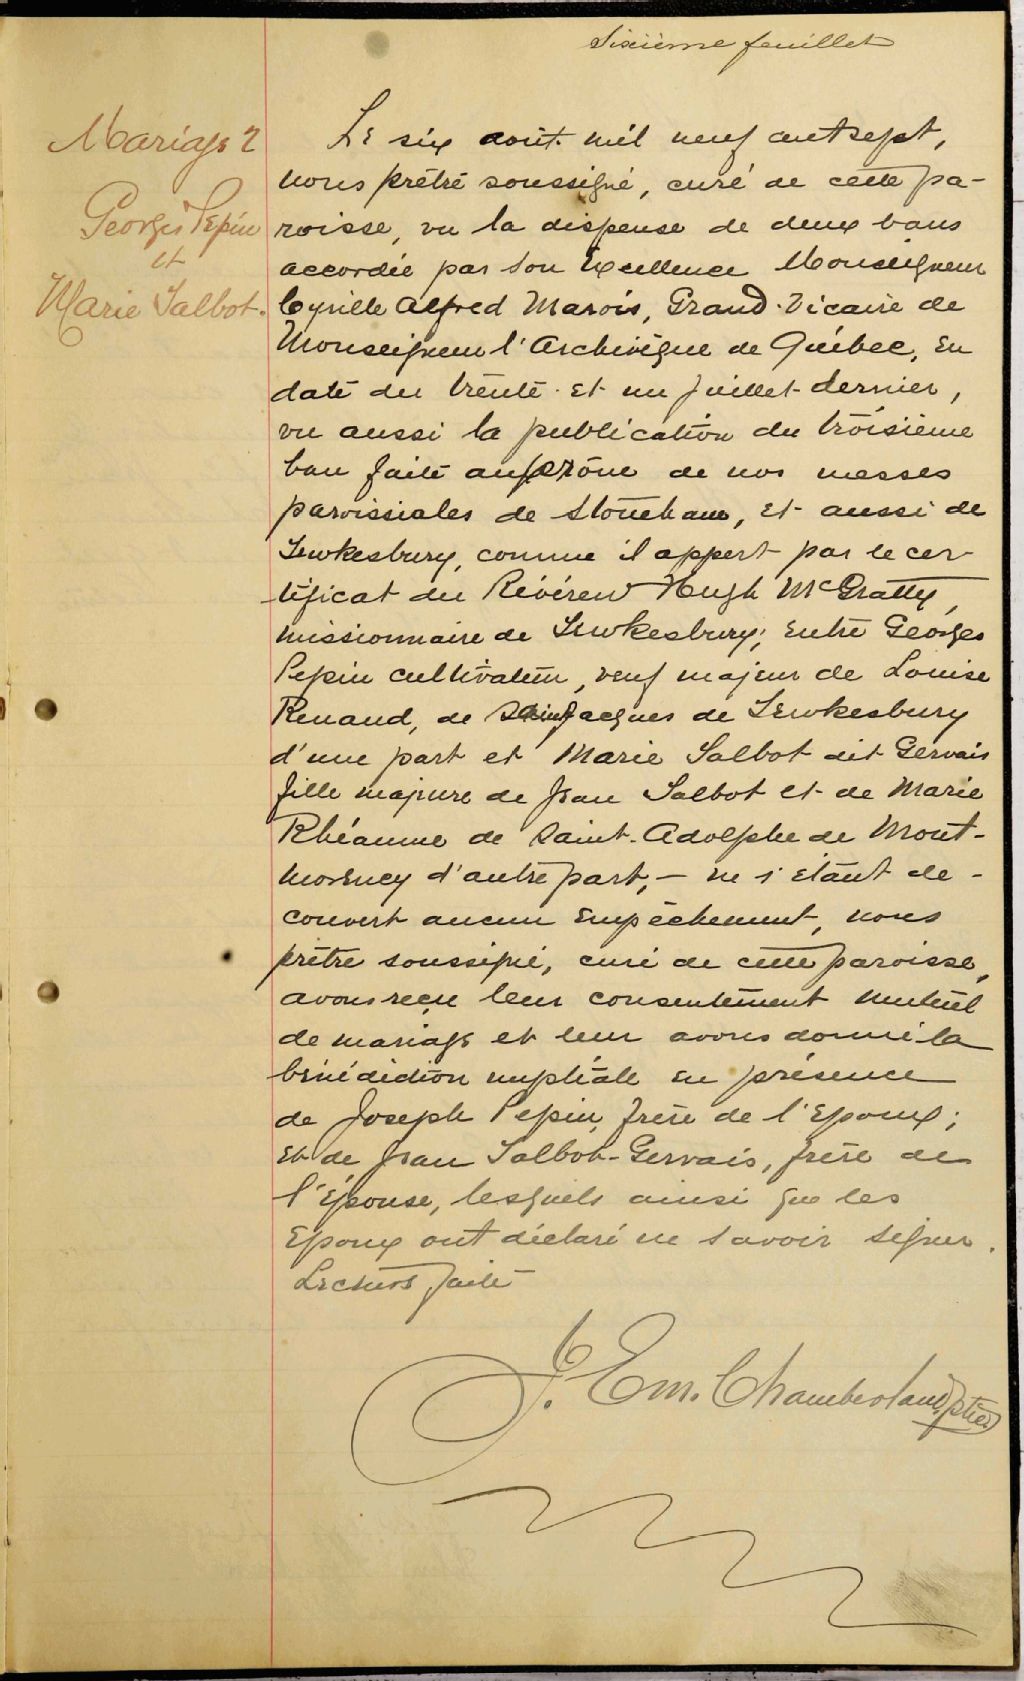 Sixième feuillet
Mariage 2
Georges Pepin
et
Marie Talbot.
Le six août mil neuf cent sept,
nous prêtre soussigné, curé de cette pa-
roisse, vu la dispense de deux bans
accordée par Son Excellence Monseigneur
Cyrille Alfred Marois, Grand-Vicaire de
Monseigneur l'Archevêque de Québec, en
date du trente et un juillet dernier,
vu aussi la publication du troisième
ban faite au prône de nos messes
paroissiales de Stoneham, et aussi de
Tewkesbury, comme il appert par le cer-
tificat du Révérend Hugh McGratty,
missionnaire de Tewkesbury; entre Georges
Pepin cultivateur, veuf majeur de Louise
Renaud, de Saint Jacques de Tewkesbury
d'une part et Marie Talbot dit Gervais
fille majeure de Jean Talbot et de Marie
Rhéaume de Saint-Adolphe de Mont-
morency d'autre part, - ne s'étant dé-
couvert aucun empêchement, nous
prêtre soussigné, curé de cette paroisse,
avons reçu leur consentement mutuel
de mariage et leur avons donné la
bénédiction nuptiale en présence
de Joseph Pepin, frère de l'Epoux;
et de Jean Talbot-Gervais, frère de
l'Épouse, lesquels ainsi que les
Epoux ont déclaré ne savoir signer.
Lecture faite
J. Em. Chamberland, ptre